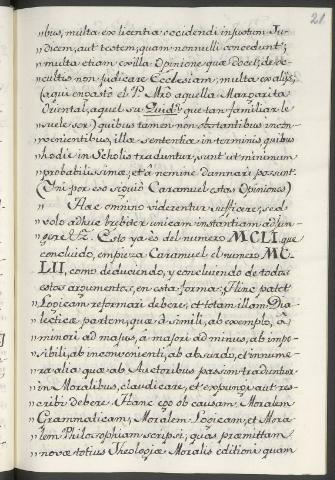 21
"bus, multa ex licentia occidendi injustum Ju-
"dicem, aut testem, quam nonnulli concedunt;
"multa etiam ex illa Opinione quæ docet; de oc-
"cultis non judicare Ecclesiam; multa ex alijs;
(aqui engastò el P. Mrò aquella Margarita
Oriental, aquel su Quid? que tan familiar le
suele ser) quibus tamen non obstantibus incon-
"venientibus, illæ sententiæ in terminis, quibus
"hodie in Scholis traduntur, sunt ut minimum
"probabilissimæ; et à nemine damnari possunt.
(Ini por eso siguiò Caramuel estas Opiniones)
" Hæc omnino viderentur sufficere; sed
" volo adhuc breviter unicam instantiam adjun-
" gere &c. Esto ya es del numero MCLI, que
concluido, empieza Caramuel el numero MC-
LII, como deduciendo, y concluyendo de todos
estos argumentos, en esta forma: Hinc patet
" Logicam reformari debere; et totam illam Dia-
" lecticæ partem, quæ à simili, ab exemplo, à
" minori ad majus, à majori ad minus, ab impo-
" sibili, ab inconvenienti, ab absurdo, et innume-
" ra alia quæ ab Auctoribus passim traduntur
" in Moralibus, claudicare, et expungi aut res-
" cribi debere. Hanc ego ob causam, Moralem
" Grammaticam, Moralem Logicam, et Mora-
" lem Philosophiam scripsi, quas præmittam
" novæ totius Theologiæ Moralis editioni quam